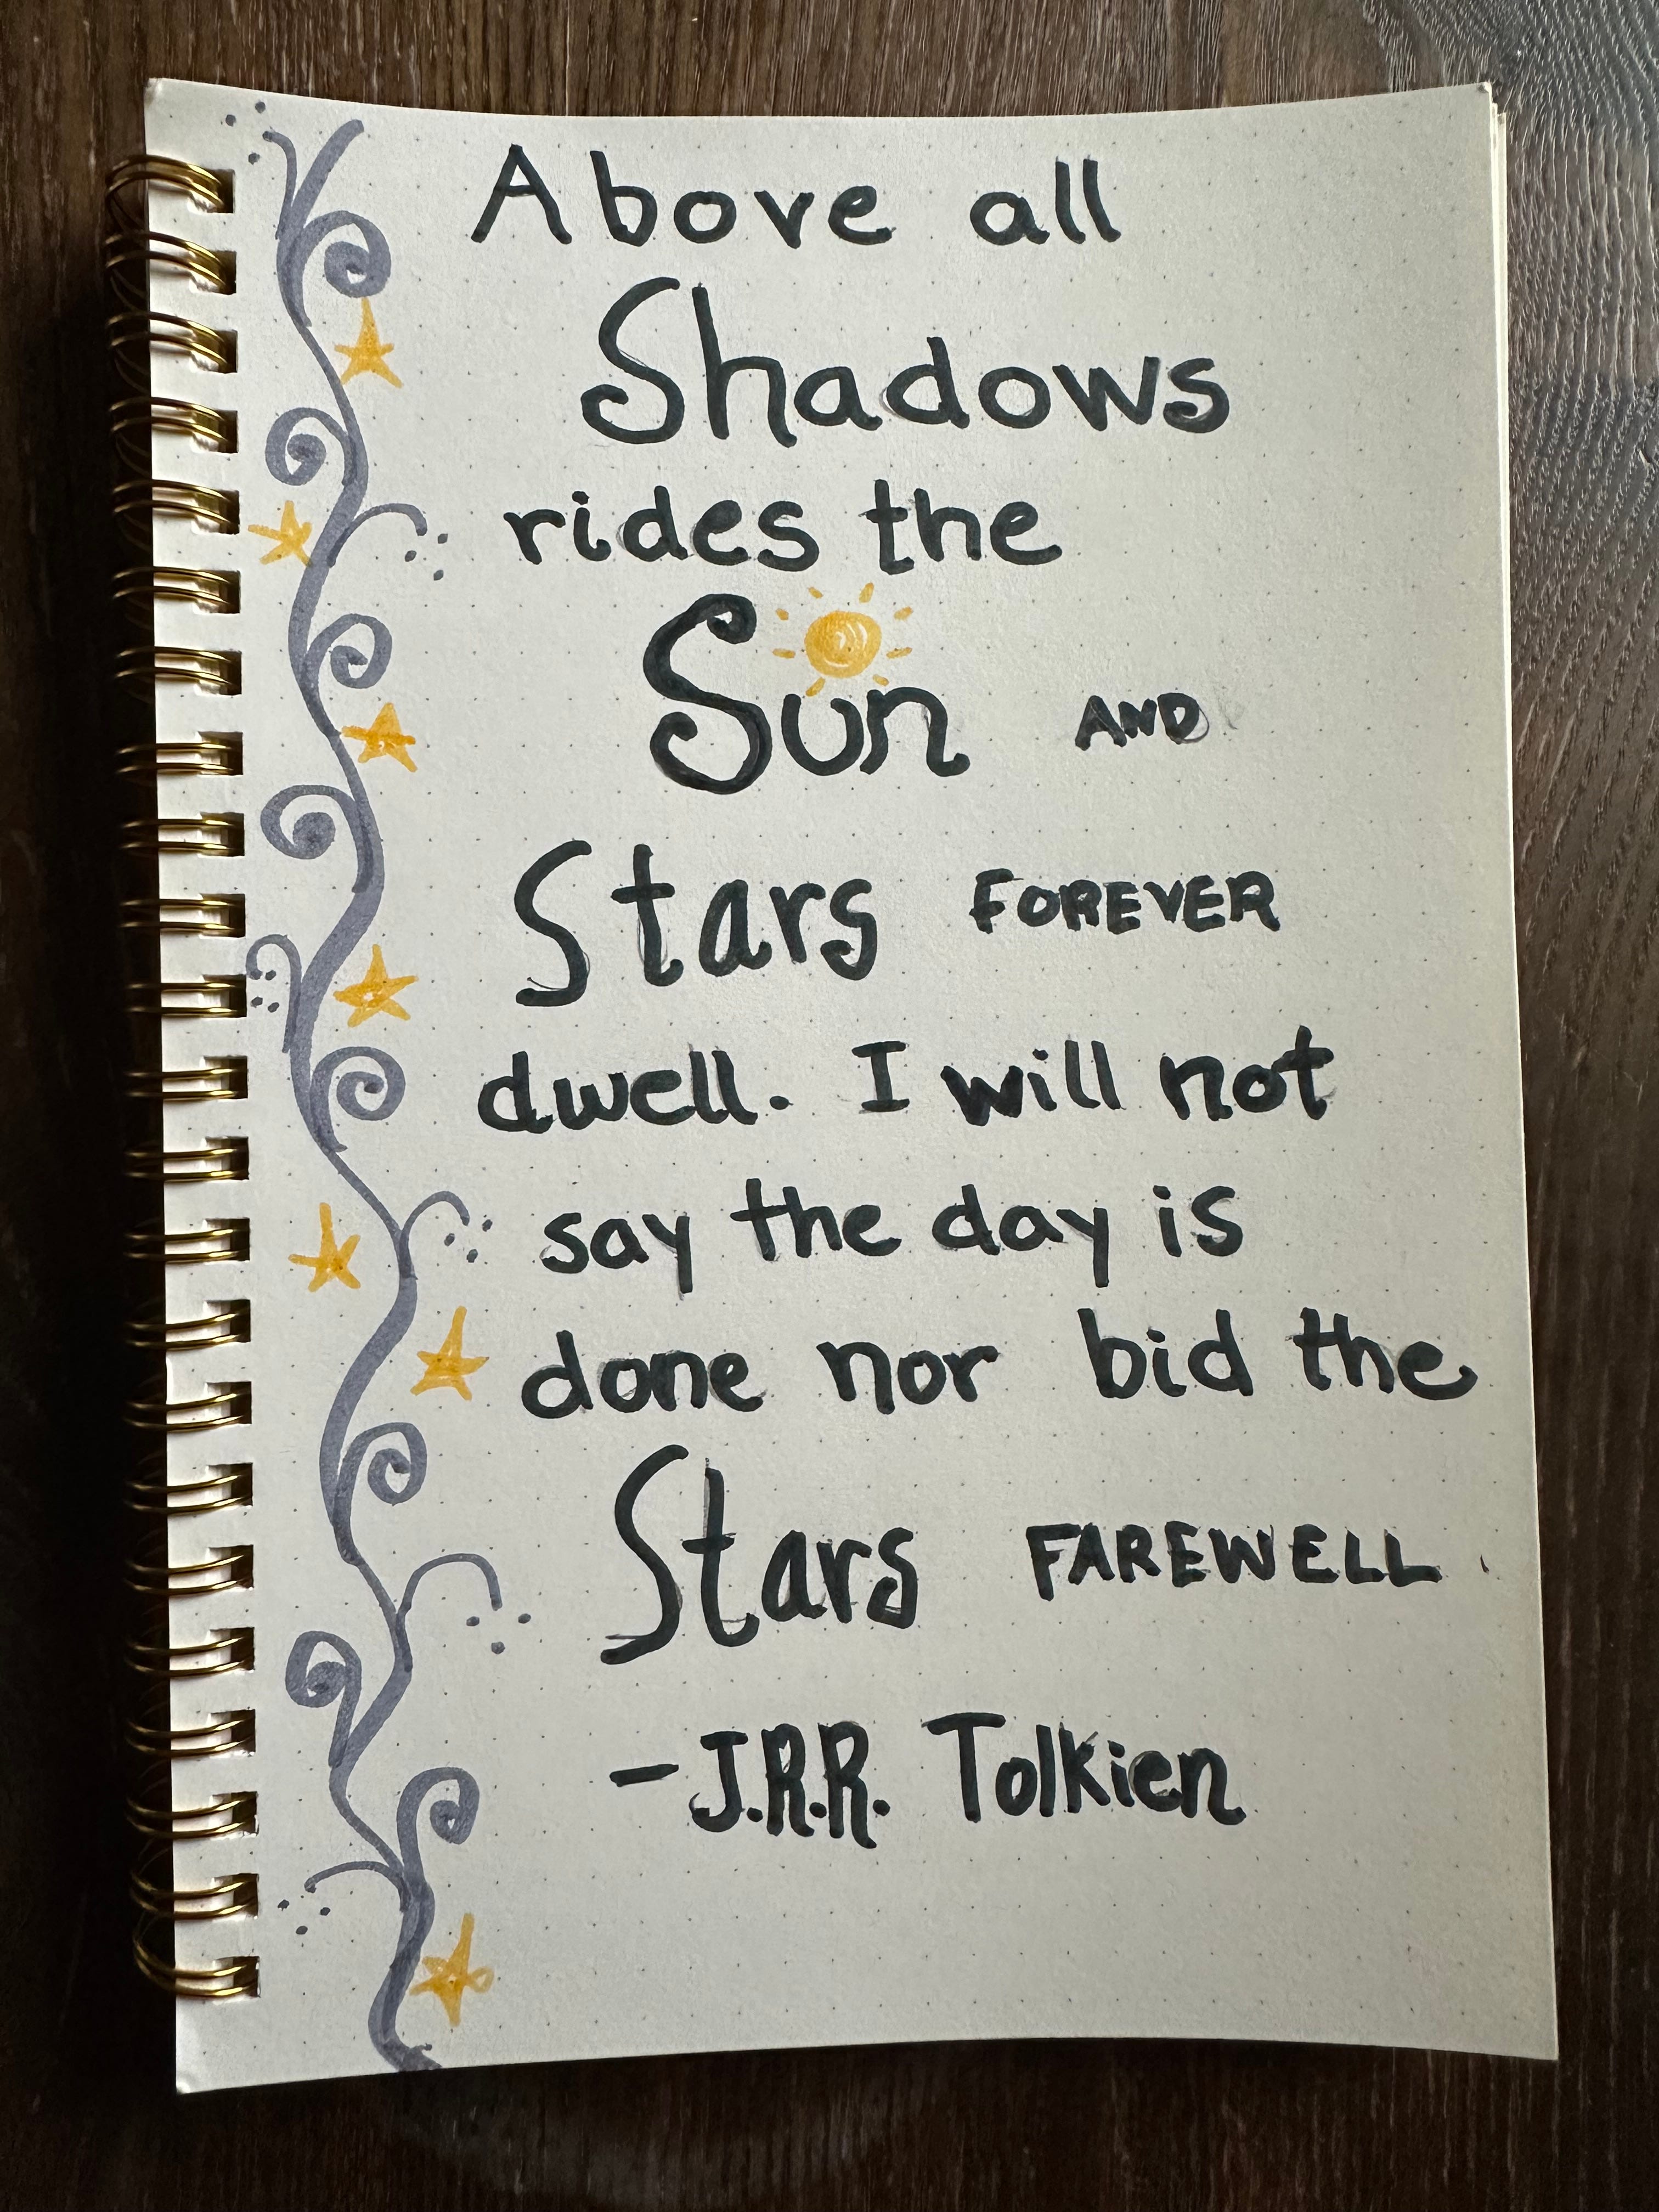 Above all
Shadows
rides the
Sun AND
Stars FOREVER
dwell. I will not
say the day is
done nor bid the
Stars FAREWELL.
-J.R.R. Tolkien